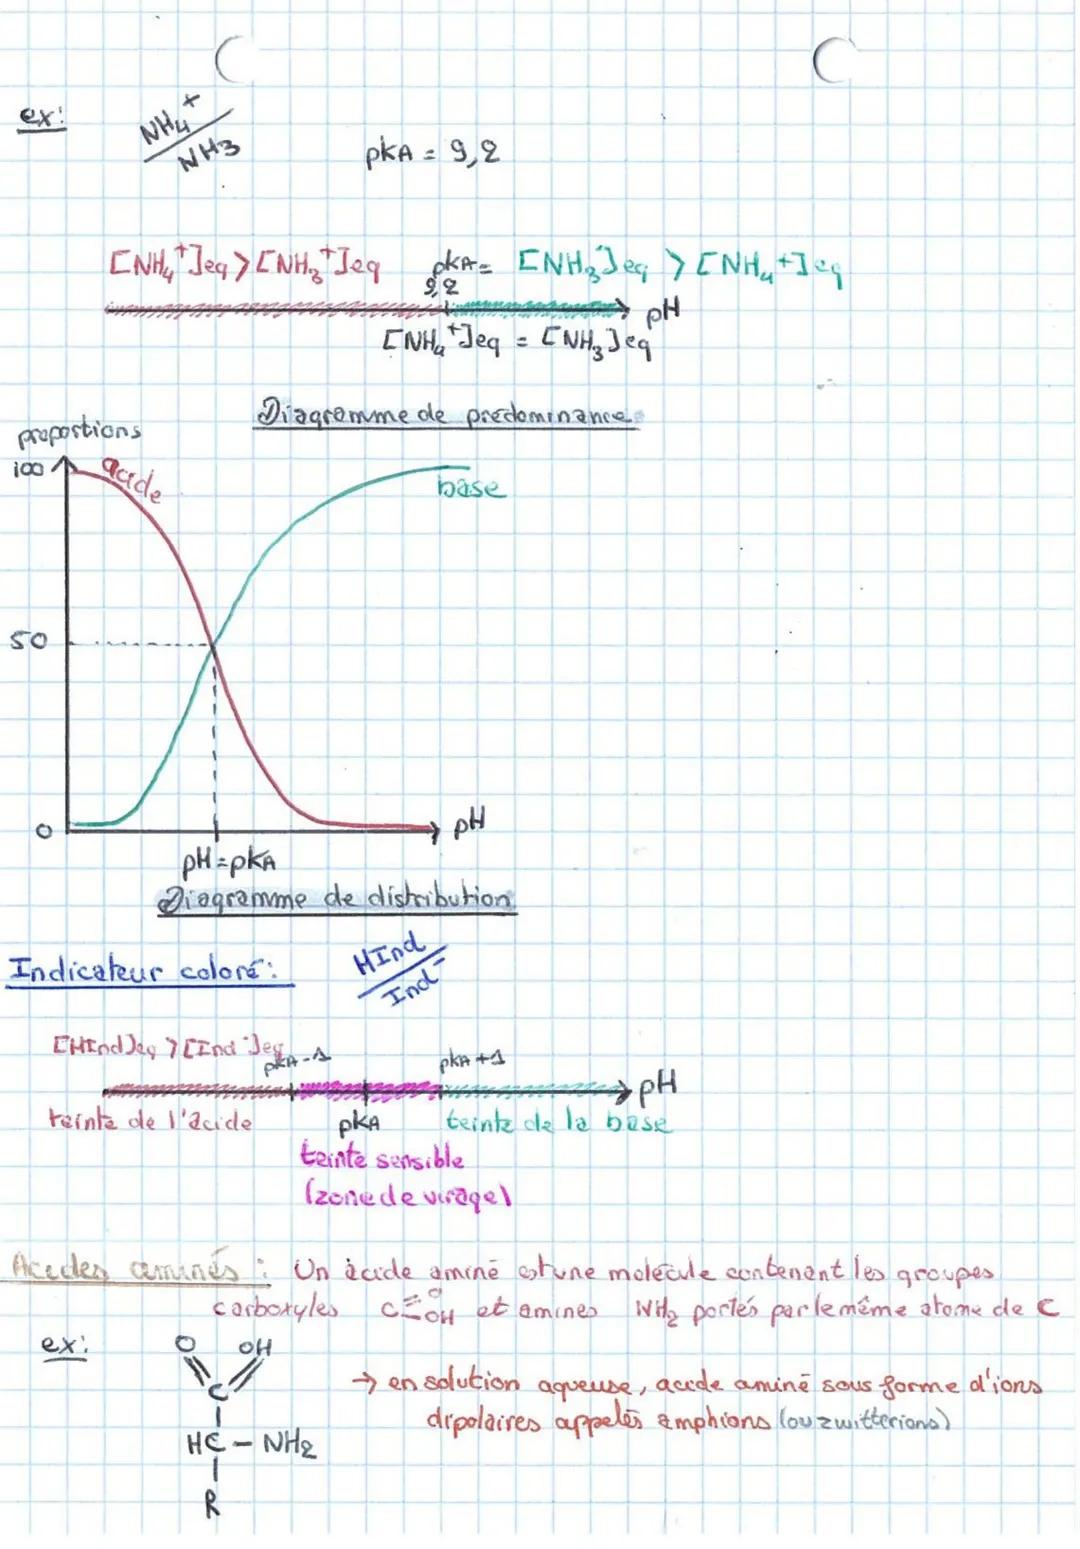 ex:
NH4+
NH3
pkA = 9,2
[NH4+]eq > [NH3+]eq
pkA=
9,2
[NH3]eq > [NH4+]eq
pH
[NH4+]eq = [NH3]eq
Diagramme de prédominance
proportions
100
acide
base
50
0
pH
pH=pkA
Diagramme de distribution
Indicateur coloré:
HInd
Ind-
[HInd]eq > [Ind-]eq
pkA-1
pkA+1
pH
teinte de l'acide
pkA
teinte de la base
teinte sensible
(zone de virage)
Acides aminés : Un acide aminé est une molécule contenant les groupes
carboxyles C=O OH et amines NH2 portés par le même atome de C
ex:
O OH
C
→ en solution aqueuse, acide aminé sous forme d'ions
dipolaires appelés amphions (ou zwitterions)
HC - NH2
R